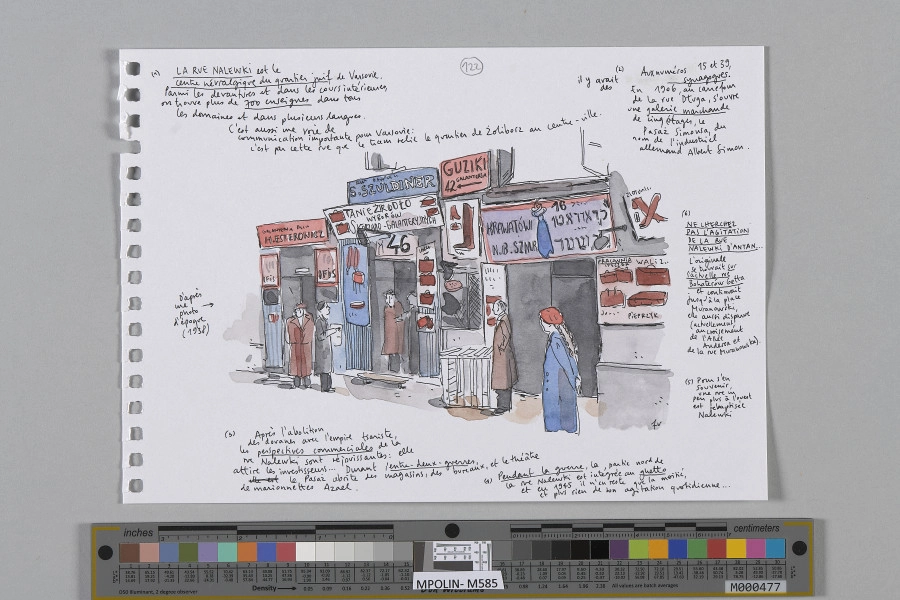 122
(1) LA RUE NALEWKI est le
centre névralgique du quartier juif de Varsovie.
Parmi les devantures et dans les cours intérieures,
on trouve plus de 700 enseignes dans tous
les domaines et dans plusieurs langues.
C'est aussi une voie de
communication importante pour Varsovie:
c'est par cette rue que le tram relie le quartier de Żolibosz au centre-ville.
il y avait
des
(2) Aux numéros 15 et 39,
synagogues.
En 1906, au carrefour
de la rue Długa, s'ouvre
une galerie marchande
de cinq étages, le
Pasaż Simonsa, du
nom de l'industriel
allemand Albert Simon.
GUZIKI
42 GALANTERIA
S. SZULDINER
TANIE ŹRÓDŁO
WYROBÓW
GALANTERYJNYCH
46
KRAWATÓW
N.B. SZMR
16
WALIZ
PIEPRZYK
D'après
une
photo
d'époque
(1938)
(6)
NE CHERCHEZ
PAS L'AGITATION
DE LA RUE
NALEWKI D'ANTAN...
L'originale
se trouvait sur
l'actuelle rue
Bohaterów Getta
et continuait
jusqu'à la place
Muranowski,
elle aussi disparue
(actuellement,
au croisement
de l'Abbé
Anderea et
de la rue Muranowska).
(5) Pour s'en
souvenir,
une rue un
peu plus à l'ouest
est rebaptisée
Nalewki
(3) Après l'abolition
des douanes avec l'empire tsariste,
les perspectives commerciales de la
rue Nalewki sont réjouissantes: elle
attire les investisseurs... Durant l'entre-deux-guerres,
le Pasaż abrite des magasins, des bureaux, et le théâtre
de marionnettes Azazel.
(4) Pendant la guerre, la partie nord de
la rue Nalewki est intégrée au ghetto
et en 1945 il n'en reste que la moitié,
et plus rien de son agitation quotidienne...
inches
centimeters
D50 Illuminant, 2 degree observer
Density
All values are batch averages
MPOLIN- M585
M000477